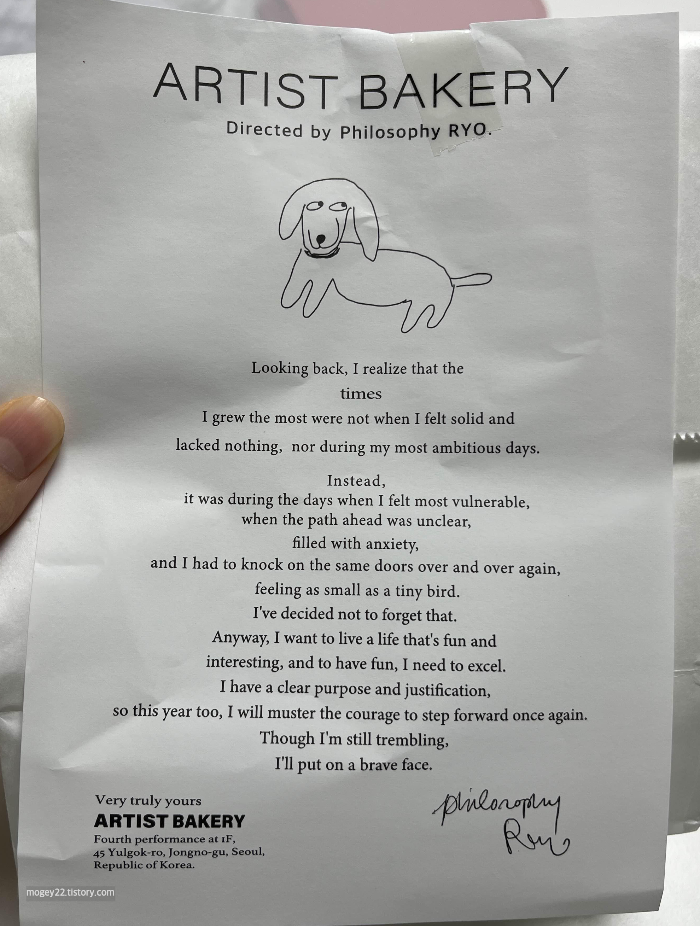 ARTIST BAKERY
Directed by Philosophy RYO.
Looking back, I realize that the
times
I grew the most were not when I felt solid and
lacked nothing, nor during my most ambitious days.
Instead,
it was during the days when I felt most vulnerable,
when the path ahead was unclear,
filled with anxiety,
and I had to knock on the same doors over and over again,
feeling as small as a tiny bird.
I've decided not to forget that.
Anyway, I want to live a life that's fun and
interesting, and to have fun, I need to excel.
I have a clear purpose and justification,
so this year too, I will muster the courage to step forward once again.
Though I'm still trembling,
I'll put on a brave face.
Very truly yours
ARTIST BAKERY
Fourth performance at 1F,
45 Yulgok-ro, Jongno-gu, Seoul,
Republic of Korea.
philosophy
Ryo
mogey22.tistory.com